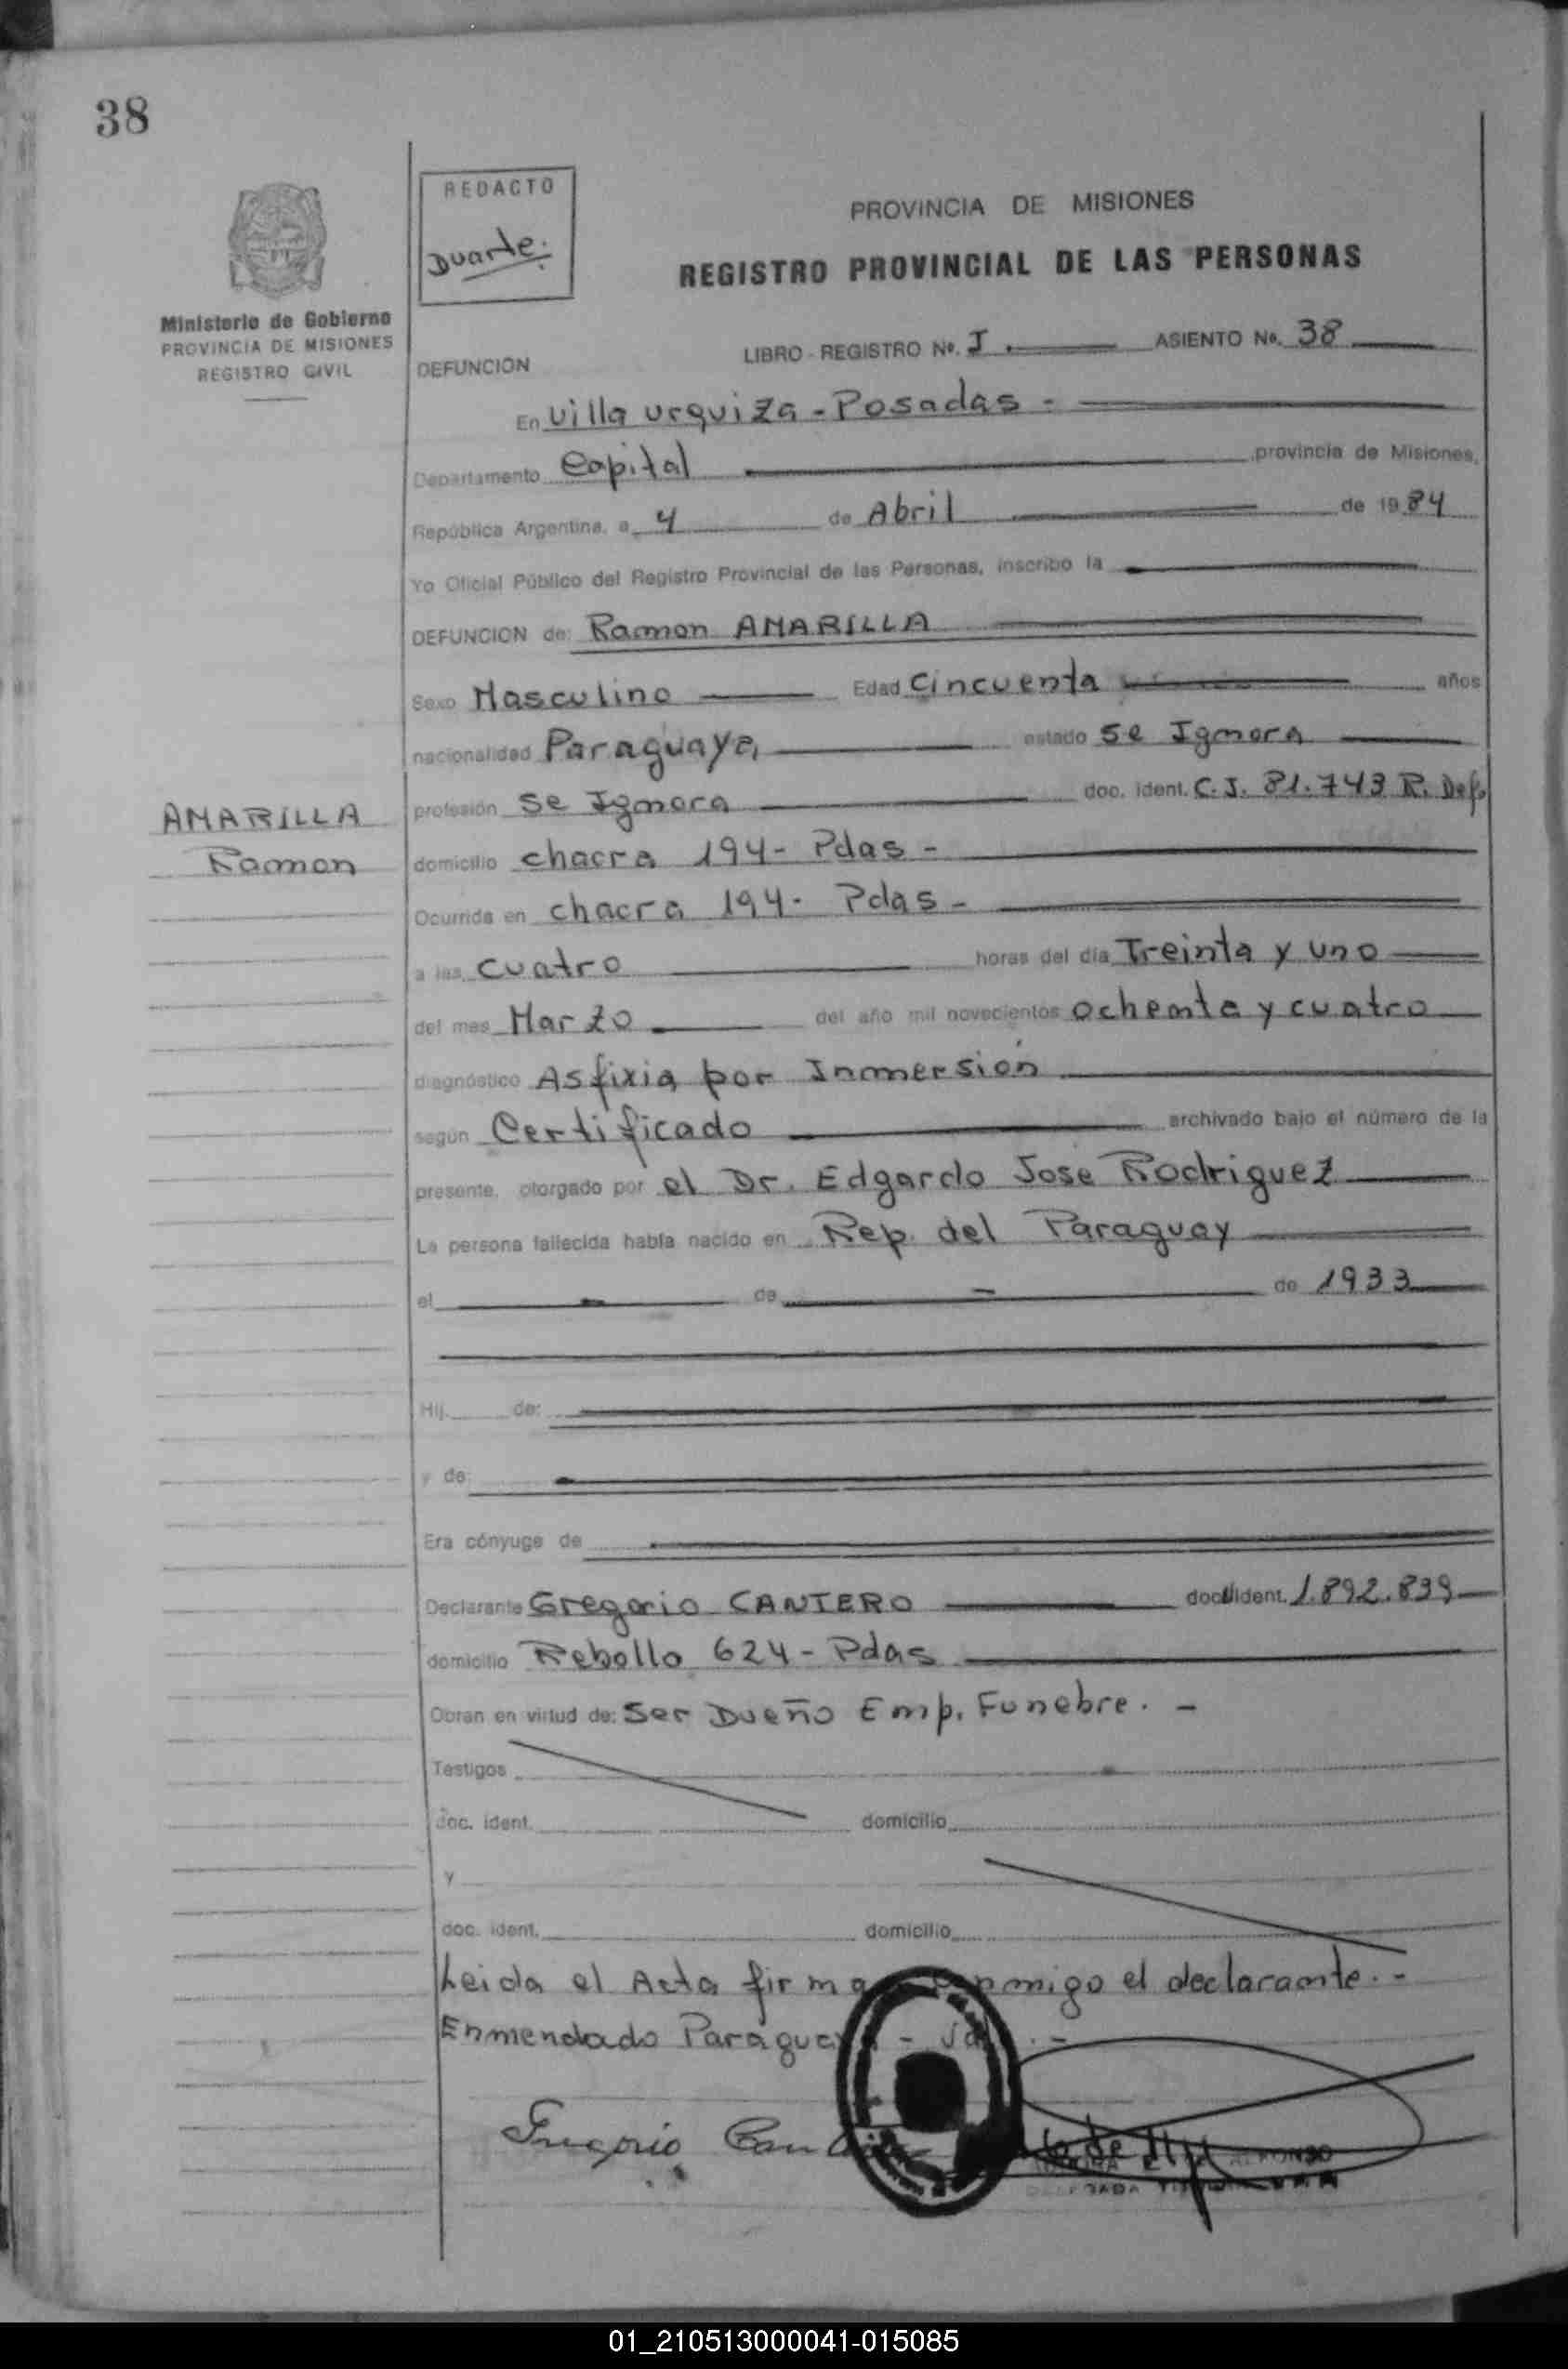 38
REDACTO
Duarte.
PROVINCIA DE MISIONES
REGISTRO PROVINCIAL DE LAS PERSONAS
Ministerio de Gobierno
PROVINCIA DE MISIONES
REGISTRO CIVIL
DEFUNCION LIBRO - REGISTRO Nº. I. ASIENTO Nº. 38
En Villa Urquiza - Posadas -
Departamento Capital provincia de Misiones,
República Argentina, a 4 de Abril de 1984
Yo Oficial Público del Registro Provincial de las Personas, inscribo la
DEFUNCION de: Ramon AMARILLA
Sexo Masculino Edad Cincuenta años
nacionalidad Paraguaya estado se Ignora
AMARILLA
Ramon
profesión se Ignora doc. ident. C.I. 81.743 R. Def.
domicilio chacra 194 - Pdas -
Ocurrida en chacra 194 - Pdas -
a las cuatro horas del día Treinta y uno
del mes Marzo del año mil novecientos ochenta y cuatro
diagnóstico Asfixia por Inmersión
según Certificado archivado bajo el número de la
presente, otorgado por el Dr. Edgardo Jose Rodriguez
La persona fallecida había nacido en Rep. del Paraguay
el de de 1933
Hij de:
y de
Era cónyuge de
Declarante Gregorio CANTERO doc. ident. 1.892.839
domicilio Rebollo 624 - Pdas
Obran en virtud de: Ser Dueño Emp. Funebre. -
Testigos
doc. ident. domicilio
y
doc. ident. domicilio
Leida el Acta firma conmigo el declarante. -
Enmendado Paraguaya -
Gregorio
01_210513000041-015085